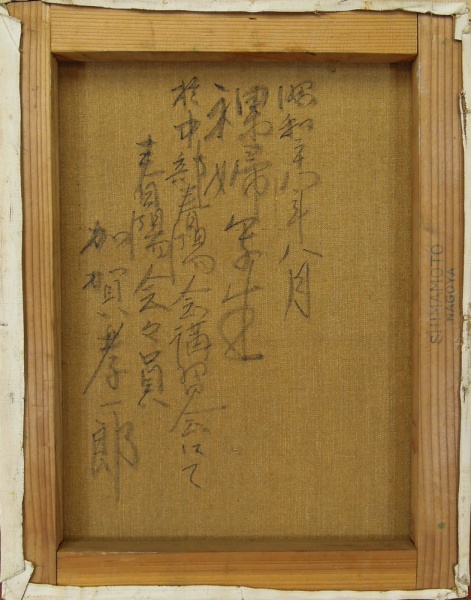 昭和三十八年八月
裸婦写生
於中部春陽会講習会にて
春陽会々員
加賀孝一郎
SHIMAMOTO
NAGOYA